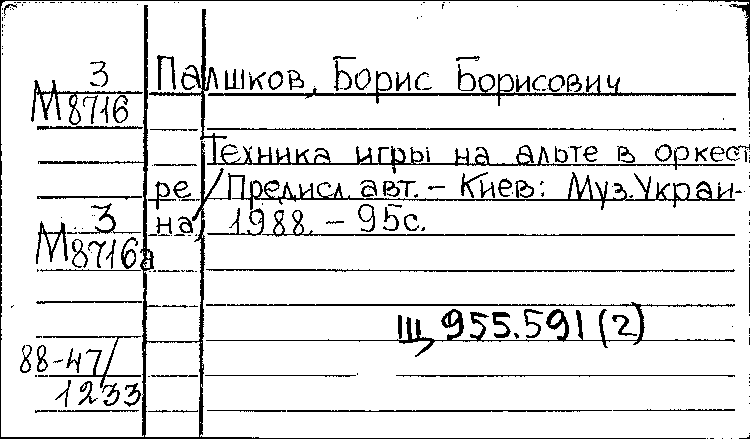 З
М8716
Палшков, Борис Борисович
Техника игры на альте в оркест
ре / Предисл. авт. – Киев: Муз. Украи-
на, 1988. – 95с.
З
М8716а
Щ 955.591 (2)
88-47/
1233